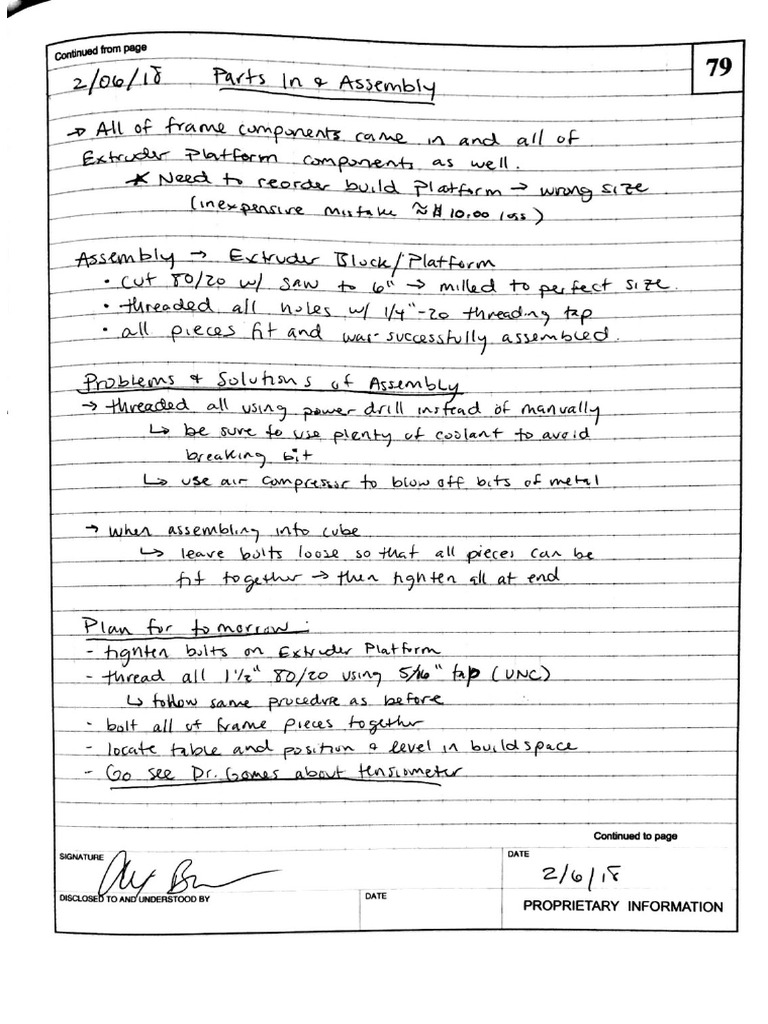 Continued from page
79
2/06/18 Parts In & Assembly
→ All of frame components came in and all of
Extruder Platform components as well.
* Need to reorder build platform → wrong size
(inexpensive mistake ≈ $10.00 loss)
Assembly → Extruder Block/Platform
• cut 80/20 w/ saw to 6" → milled to perfect size.
• threaded all holes w/ 1/4"-20 threading tap
• all pieces fit and was successfully assembled.
Problems & Solutions of Assembly
→ threaded all using power drill instead of manually
↳ be sure to use plenty of coolant to avoid
breaking bit
↳ use air compressor to blow off bits of metal
→ when assembling into cube
↳ leave bolts loose so that all pieces can be
fit together → then tighten all at end
Plan for tomorrow:
- tighten bolts on Extruder Platform
- thread all 1 1/2" 80/20 using 5/16" tap (UNC)
↳ follow same procedure as before
- bolt all of frame pieces together
- locate table and position & level in buildspace
- Go see Dr. Gomes about tensiometer
Continued to page
SIGNATURE
DATE
2/6/18
DISCLOSED TO AND UNDERSTOOD BY
DATE
PROPRIETARY INFORMATION